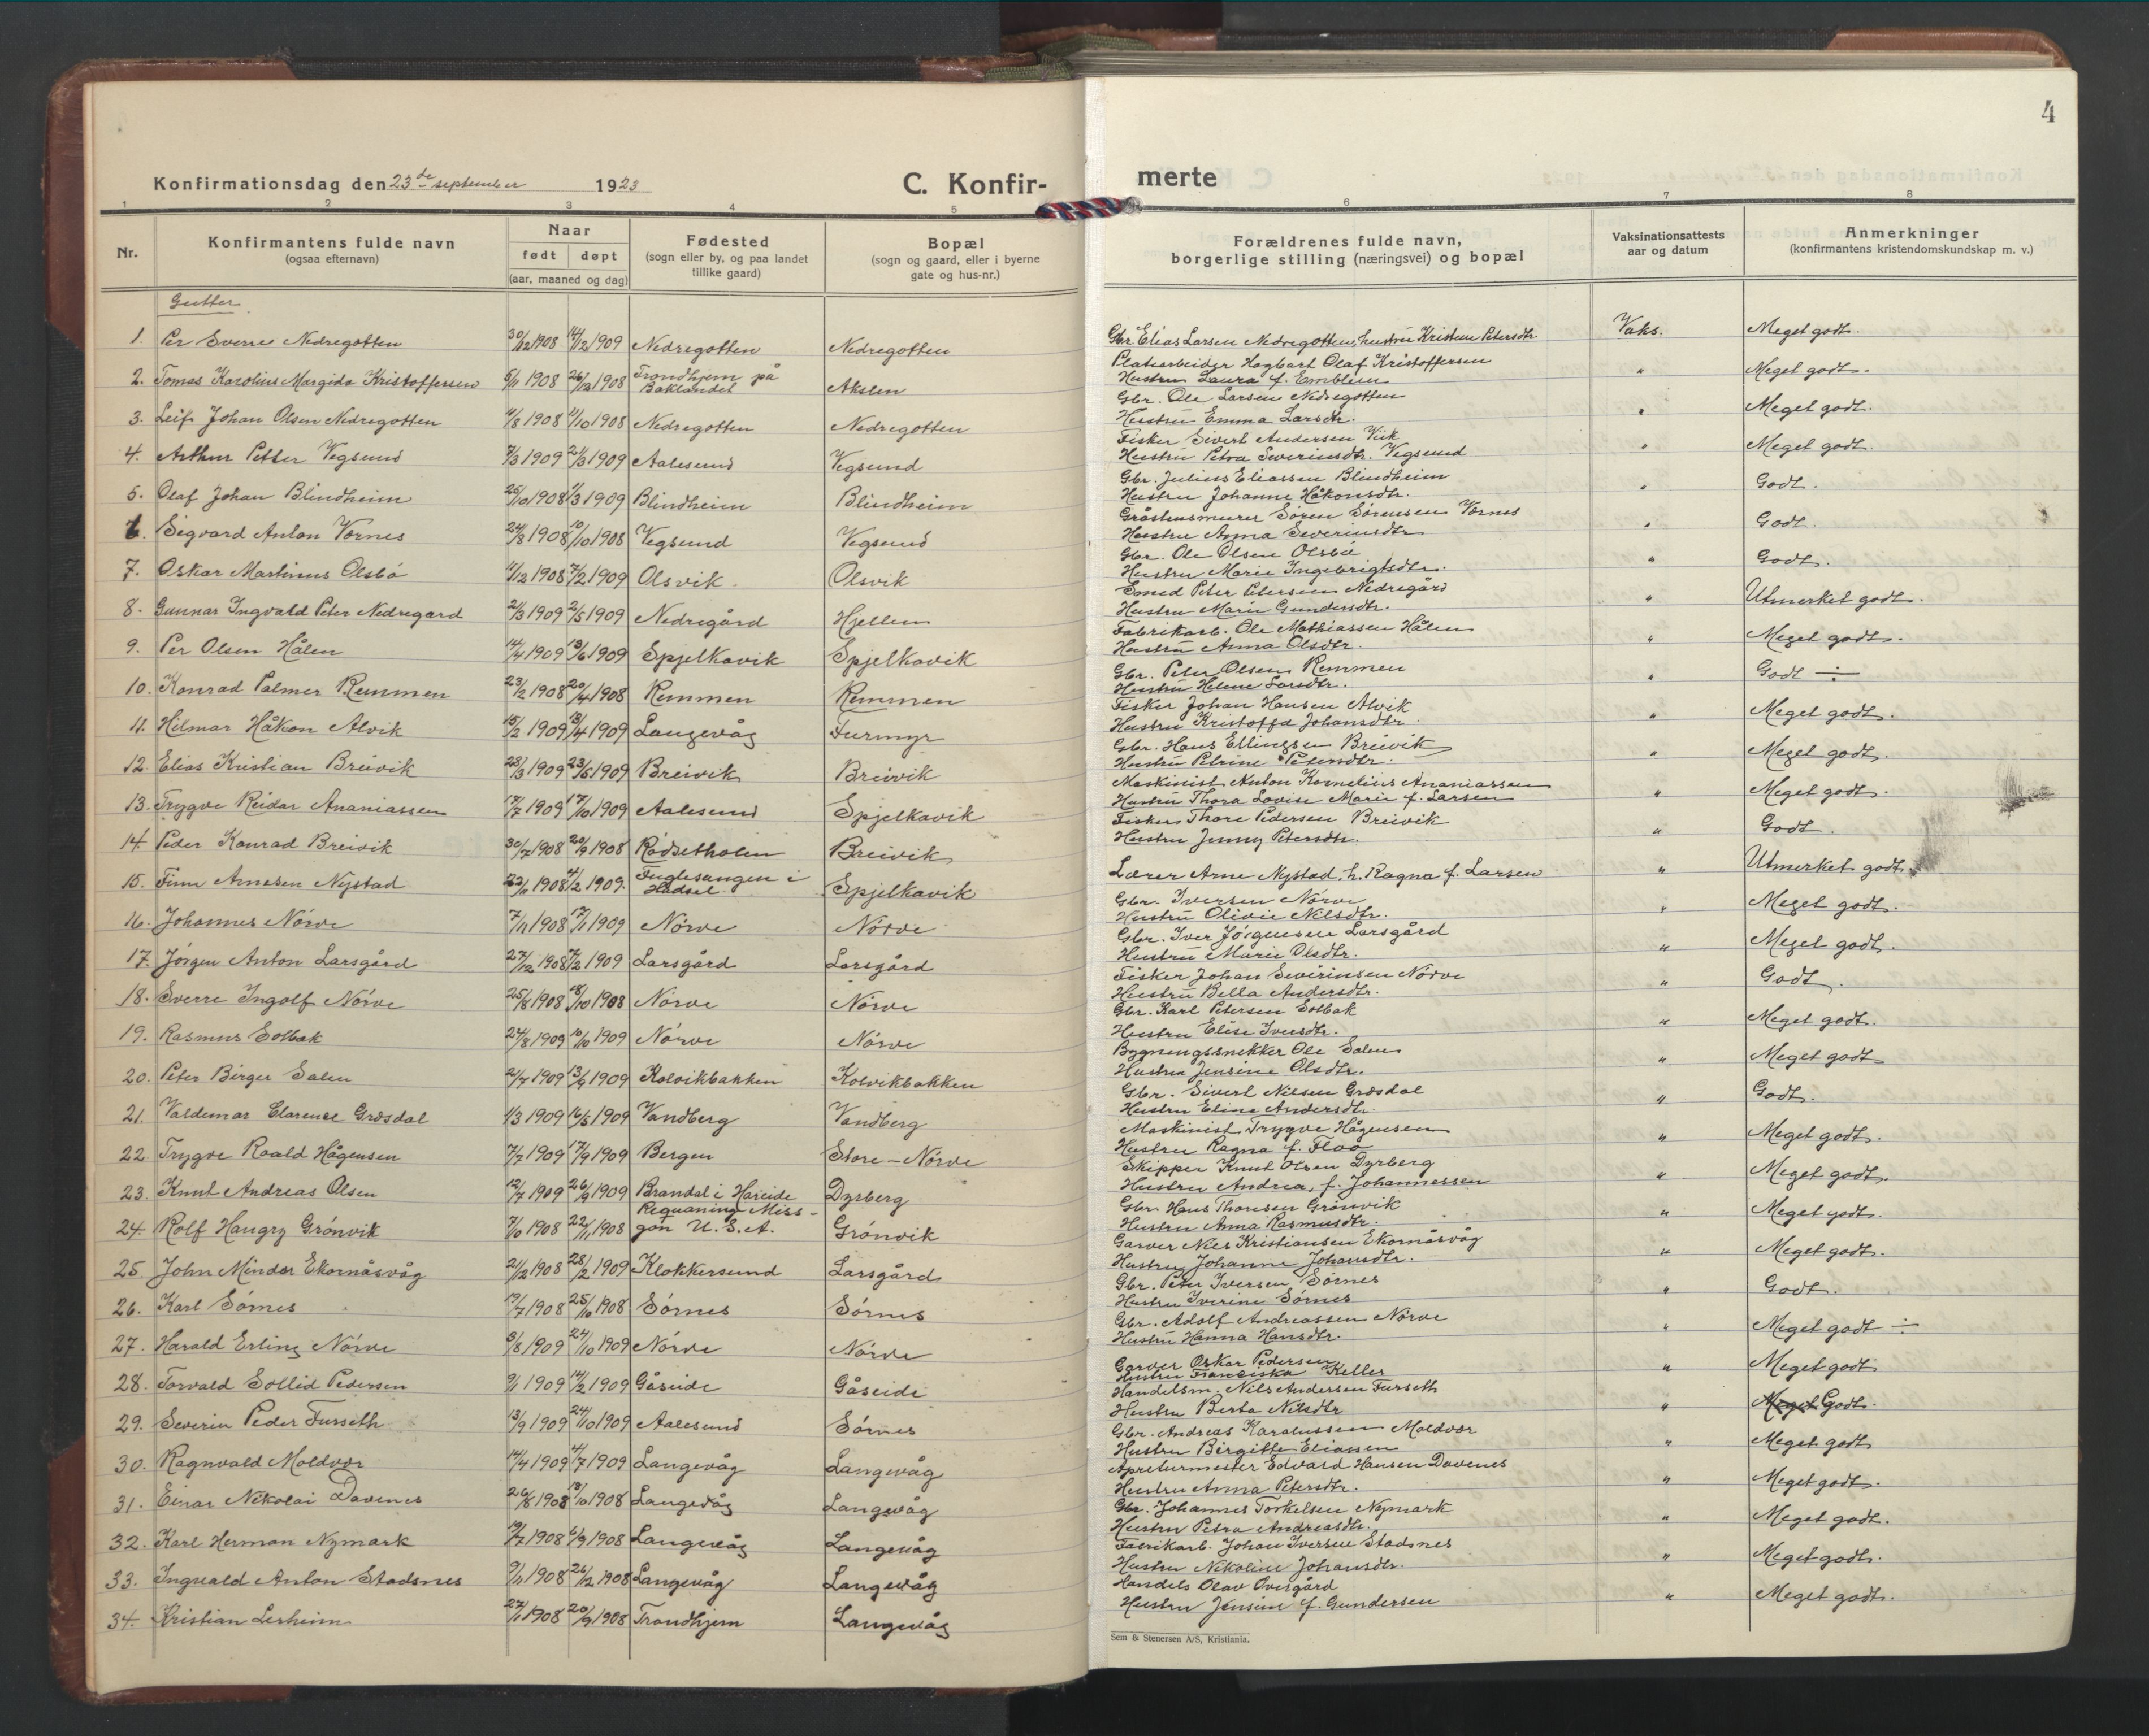 4
Konfirmationsdag den 23de september 1923
C. Konfir-
merte
1 2 3 4 5 6 7 8
Nr.
Konfirmantens fulde navn
(ogsaa efternavn)
Naar
født døpt
(aar, maaned og dag)
Fødested
(sogn eller by, og paa landet
tillike gaard)
Bopæl
(sogn og gaard, eller i byerne
gate og hus-nr.)
Forældrenes fulde navn,
borgerlige stilling (næringsvei) og bopæl
Vaksinationsattests
aar og datum
Anmerkninger
(konfirmantens kristendomskundskap m. v.)
Gutter
1. Per Sverre Nedregotten 30/12 1908 14/2 1909 Nedregotten Nedregotten Gbr. Elias Larsen Nedregotten, hustru Kristine Petersdtr. Vaks. Meget godt.
2. Tomas Karolius Margido Kristoffersen 5/11 1908 26/12 1908 Trondhjem på Baklandet Akslen Platearbeider Hagbart Olaf Kristoffersen
Hustru Laura f. Emblem " Meget godt.
3. Leif Johan Olsen Nedregotten 1908 11/10 1908 Nedregotten Nedregotten Gbr. Ole Larsen Nedregotten
Hustru Emma Larsdtr. " Meget godt.
4. Arthur Petter Vegsund 7/3 1909 21/3 1909 Aalesund Vegsund Fisker Sivert Andersen Viik
Hustru Petra Severinsdtr. Vegsund " Meget godt.
5. Olaf Johan Blindheim 25/10 1908 1/3 1909 Blindheim Blindheim Gbr. Julius Eliassen Blindheim
Hustru Johanne Håkonsdtr. " Godt.
6. Sigvard Anton Vornes 24/8 1908 10/10 1908 Vegsund Vegsund Gråstensmurer Sören Sörensen Vornes
Hustru Anna Severinsdtr " Godt.
7. Oskar Martinus Olsbö 11/12 1908 7/2 1909 Olsvik. Olsvik Gbr. Ole Olsen Olsbö
Hustru Marie Ingebrigtsdtr. " Godt.
8. Gunnar Ingvald Peter Nedregard 2/3 1909 2/5 1909 Nedregård Hjellen Smed Peter Petersen Nedregård
Hustru Marie Gundersdtr. " Utmerket godt.
9. Per Olsen Hålen 14/4 1909 13/6 1909 Spjelkavik Spjelkavik Fabrikarb. Ole Mathiassen Hålen
Hustru Anna Olsdtr. " Meget godt.
10. Konrad Palmer Remmen 23/2 1908 20/4 1908 Remmen Remmen Gbr. Peter Olsen Remmen
Hustru Helene Larsdtr. " Godt ÷
11. Hilmar Håkon Alvik 15/2 1909 13/4 1909 Langevåg Furmyr Fisker Johan Hansen Alvik
Hustru Kristoffa Johansdtr. " Meget godt.
12. Elias Kristian Breivik 28/3 1909 23/5 1909 Breivik Breivik Gbr. Hans Ellingsen Breivik
Hustru Petrine Petersdtr. " Meget godt.
13. Trygve Reidar Ananiassen 17/7 1909 17/10 1909 Aalesund Spjelkavik Maskinist Anton Kornelius Ananiassen
Hustru Thora Lovise Marie f. Larsen " Meget godt.
14. Peder Konrad Breivik 30/7 1908 20/9 1908 Rödsetholen Breivik Fisker Thore Pedersen Breivik
Hustru Jenny Petersdtr. " Godt.
15. Finn Arnesen Nystad 23/11 1908 4/2 1909. Fuglesangen i Hadsel Spjelkavik Lærer Arne Nystad, h. Ragna f. Larsen " Utmerket godt
16. Johannes Nörve 7/11 1908 17/1 1909 Nörve Nörve Gbr. Iversen Nörve
Hustru Olivie Nilsdtr. " Meget godt.
17. Jörgen Anton Larsgård 27/12 1908 7/2 1909 Larsgård Larsgård Gbr. Iver Jörgensen Larsgård
Hustru Marie Olsdtr. " Meget godt.
18. Sverre Ingolf Nörve 25/8 1908 18/10 1908 Nörve Nörve Fisker Johan Severinsen Nörve
Hustru Bella Andersdtr. " Godt.
19. Rasmus Solbak 24/8 1909 10/10 1909 Nörve Nörve Gbr. Karl Petersen Solbak
Hustru Elise Iversdtr. " Meget godt.
20. Peter Birger Salen 2/7 1909 13/9 1909 Kolvikbakken Kolvikbakken Bygningssnekker Ole Salen
Hustru Jensine Olsdtr. " Meget godt
21. Valdemar Clarence Grösdal 1/3 1909 16/5 1909 Vandberg Vandberg Gbr. Sivert Nilsen Grösdal
Hustru Eline Andersdtr. " Godt.
22. Trygve Roald Hågensen 7/7 1909 17/9 1909 Bergen Store-Nörve Maskinist Trygve Hågensen
Hustru Ragna f. Floö " Meget godt.
23. Knut Andreas Olsen 12/7 1909 26/9 1909 Brandal i Hareide Dyrberg Skipper Knut Olsen Dyrberg
Hustru Andrea, f. Johannessen " Meget godt.
24. Rolf Hangry Grönvik 7/10 1908 22/11 1908 Requaning Miss-
gon U.S.A. Grönvik Gbr. Hans Thoresen Grönvik
Hustru Anna Rasmusdtr. " Meget godt.
25. John Mindor Ekornåsvåg 2/12 1908 28/2 1909 Klokkersund Larsgård Garver Nils Kristiansen Ekornåsvåg
Hustru Johanne Johansdtr. " Meget godt.
26. Karl Sörnes 19/7 1908 25/10 1908 Sörnes Sörnes Gbr. Peter Iversen Sörnes
Hustru Iverine Sörnes " Godt.
27. Harald Erling Nörve 3/8 1909 24/10 1909 Nörve Nörve Gbr. Adolf Andreassen Nörve
Hustru Hanna Hansdtr. " Meget godt ÷
28. Torvald Sollid Pedersen 9/1 1909 14/2 1909 Gåseide Gåseide Garver Oskar Pedersen
Hustru Franciska Keller " Meget godt
29. Severin Peder Furseth 13/9 1909 24/10 1909 Aalesund Sörnes Handelsm. Nils Andersen Furseth
Hustru Berta Nilsdtr " Meget Godt.
30. Ragnvald Moldvær 14/4 1909 4/7 1909 Langevåg Langevåg Gbr. Andreas Karolussen Moldvær
Hustru Birgitte Eliassen " Meget godt
31. Einar Nikolai Davenes 26/8 1908 18/10 1908 Langevåg Langevåg Apreturmester Edvard Hansen Davenes
Hustru Anna Petersdtr. " Meget godt.
32. Karl Herman Nymark 19/7 1908 6/9 1908 Langevåg Langevåg Gbr. Johannes Torkelsen Nymark
Hustru Petra Andreasdtr. " Meget godt.
33. Ingvald Anton Stadsnes 9/11 1908 26/12 1908 Langevåg Langevåg Fabrikarb. Johan Iversen Stadsnes
Hustru Nikoline Johansdtr. " Meget godt.
34. Kristian Lerheim 27/1 1908 20/9 1908 Trondhjem Langevåg Handels Olav Övergård
Hustru Jensine f. Gundersen " Meget godt.
Sem & Stenersen A/S, Kristiania.